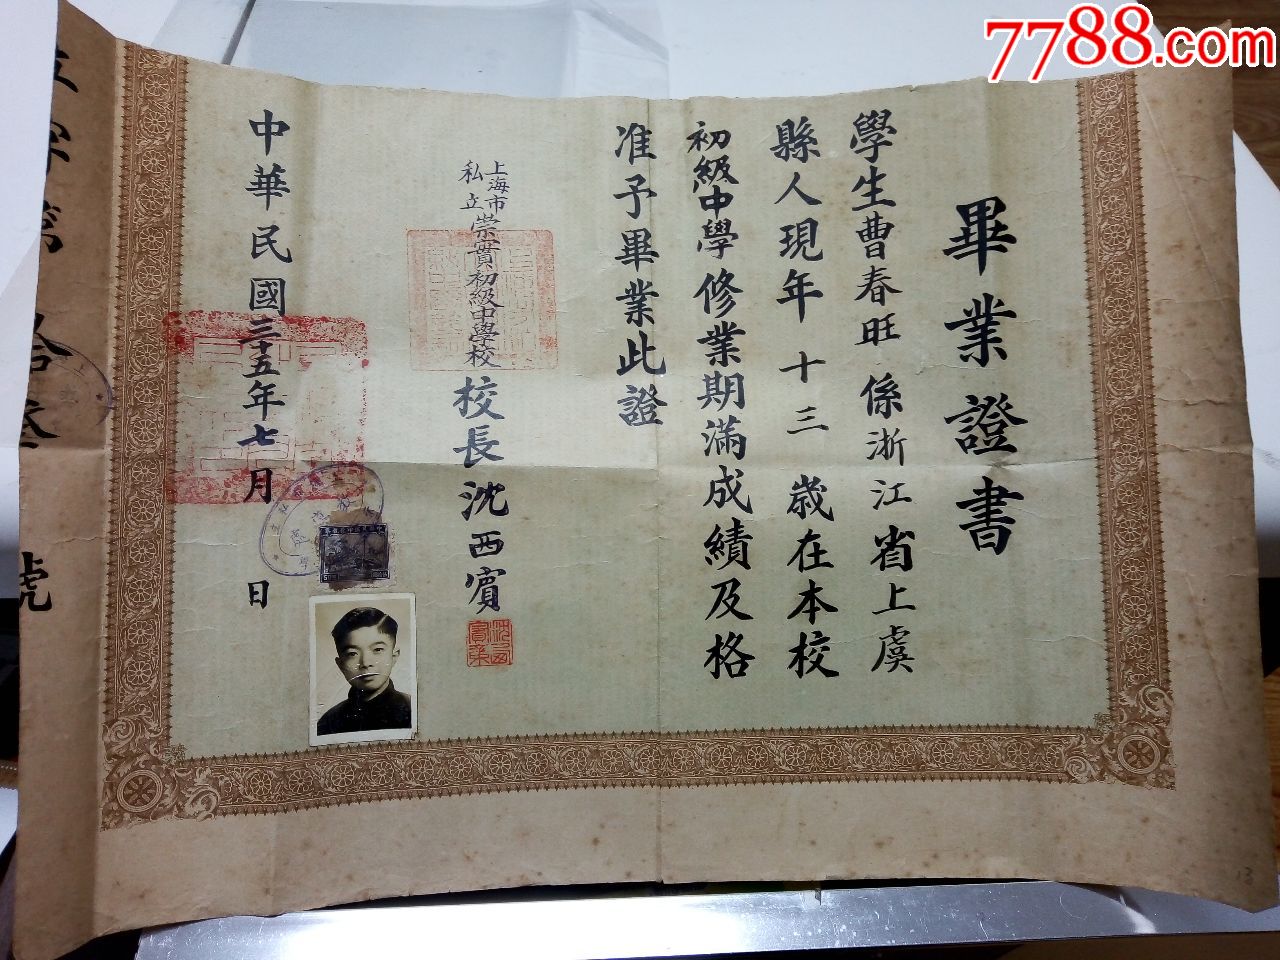 7788.com
畢業證書
學生曹春旺係浙江省上虞
縣人現年十三歲在本校
初級中學修業期滿成績及格
准予畢業此證
上海市
私立
崇實初級中學校校長沈西賓
中華民國三十五年七月 日
字第拾叁號
13